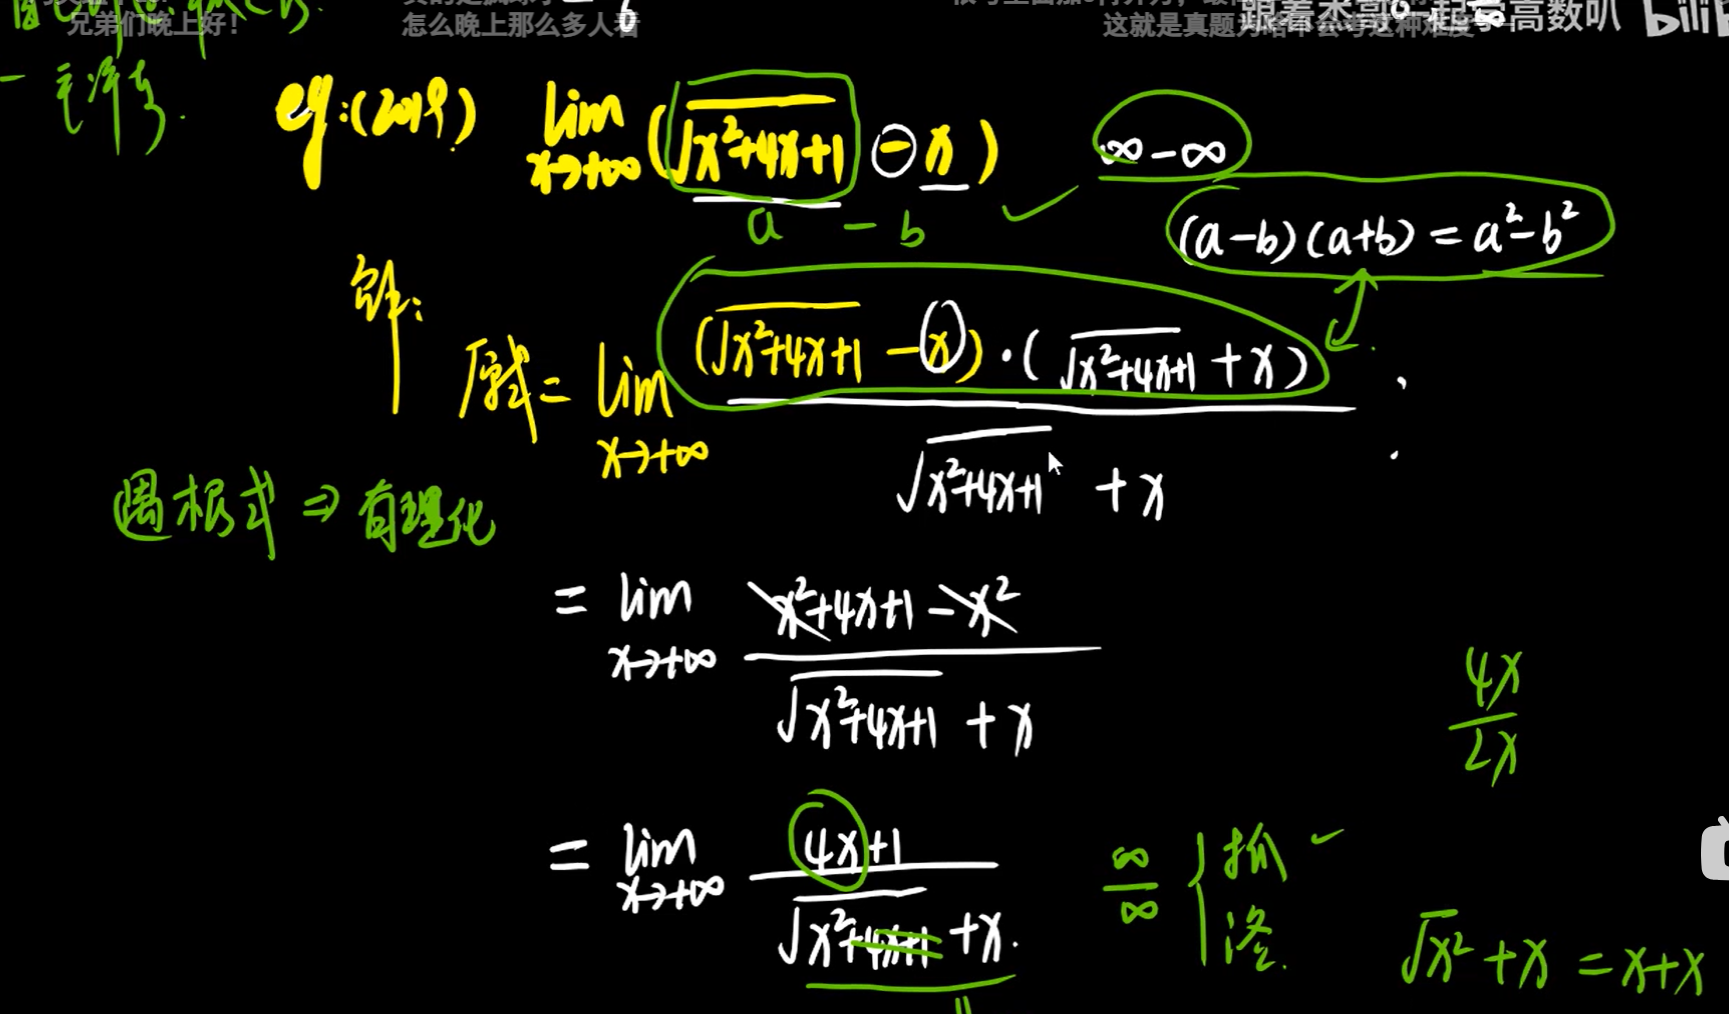 兄弟们晚上好！
怎么晚上那么多人看
跟着杰哥一起学高数叭 bili
eg:(2019) lim x→+∞ (√x²+4x+1 - x) ∞-∞
a - b ✓
(a-b)(a+b)=a²-b²
解:
原式= lim x→+∞ (√x²+4x+1 - x)·(√x²+4x+1 + x)
√x²+4x+1 + x
遇根式 ⇒ 有理化
= lim x→+∞ x²+4x+1-x²
√x²+4x+1 + x
4x
2x
= lim x→+∞ 4x+1
√x²+4x+1 + x.
∞
∞
抓 ✓
洛.
√x² + x = x+x